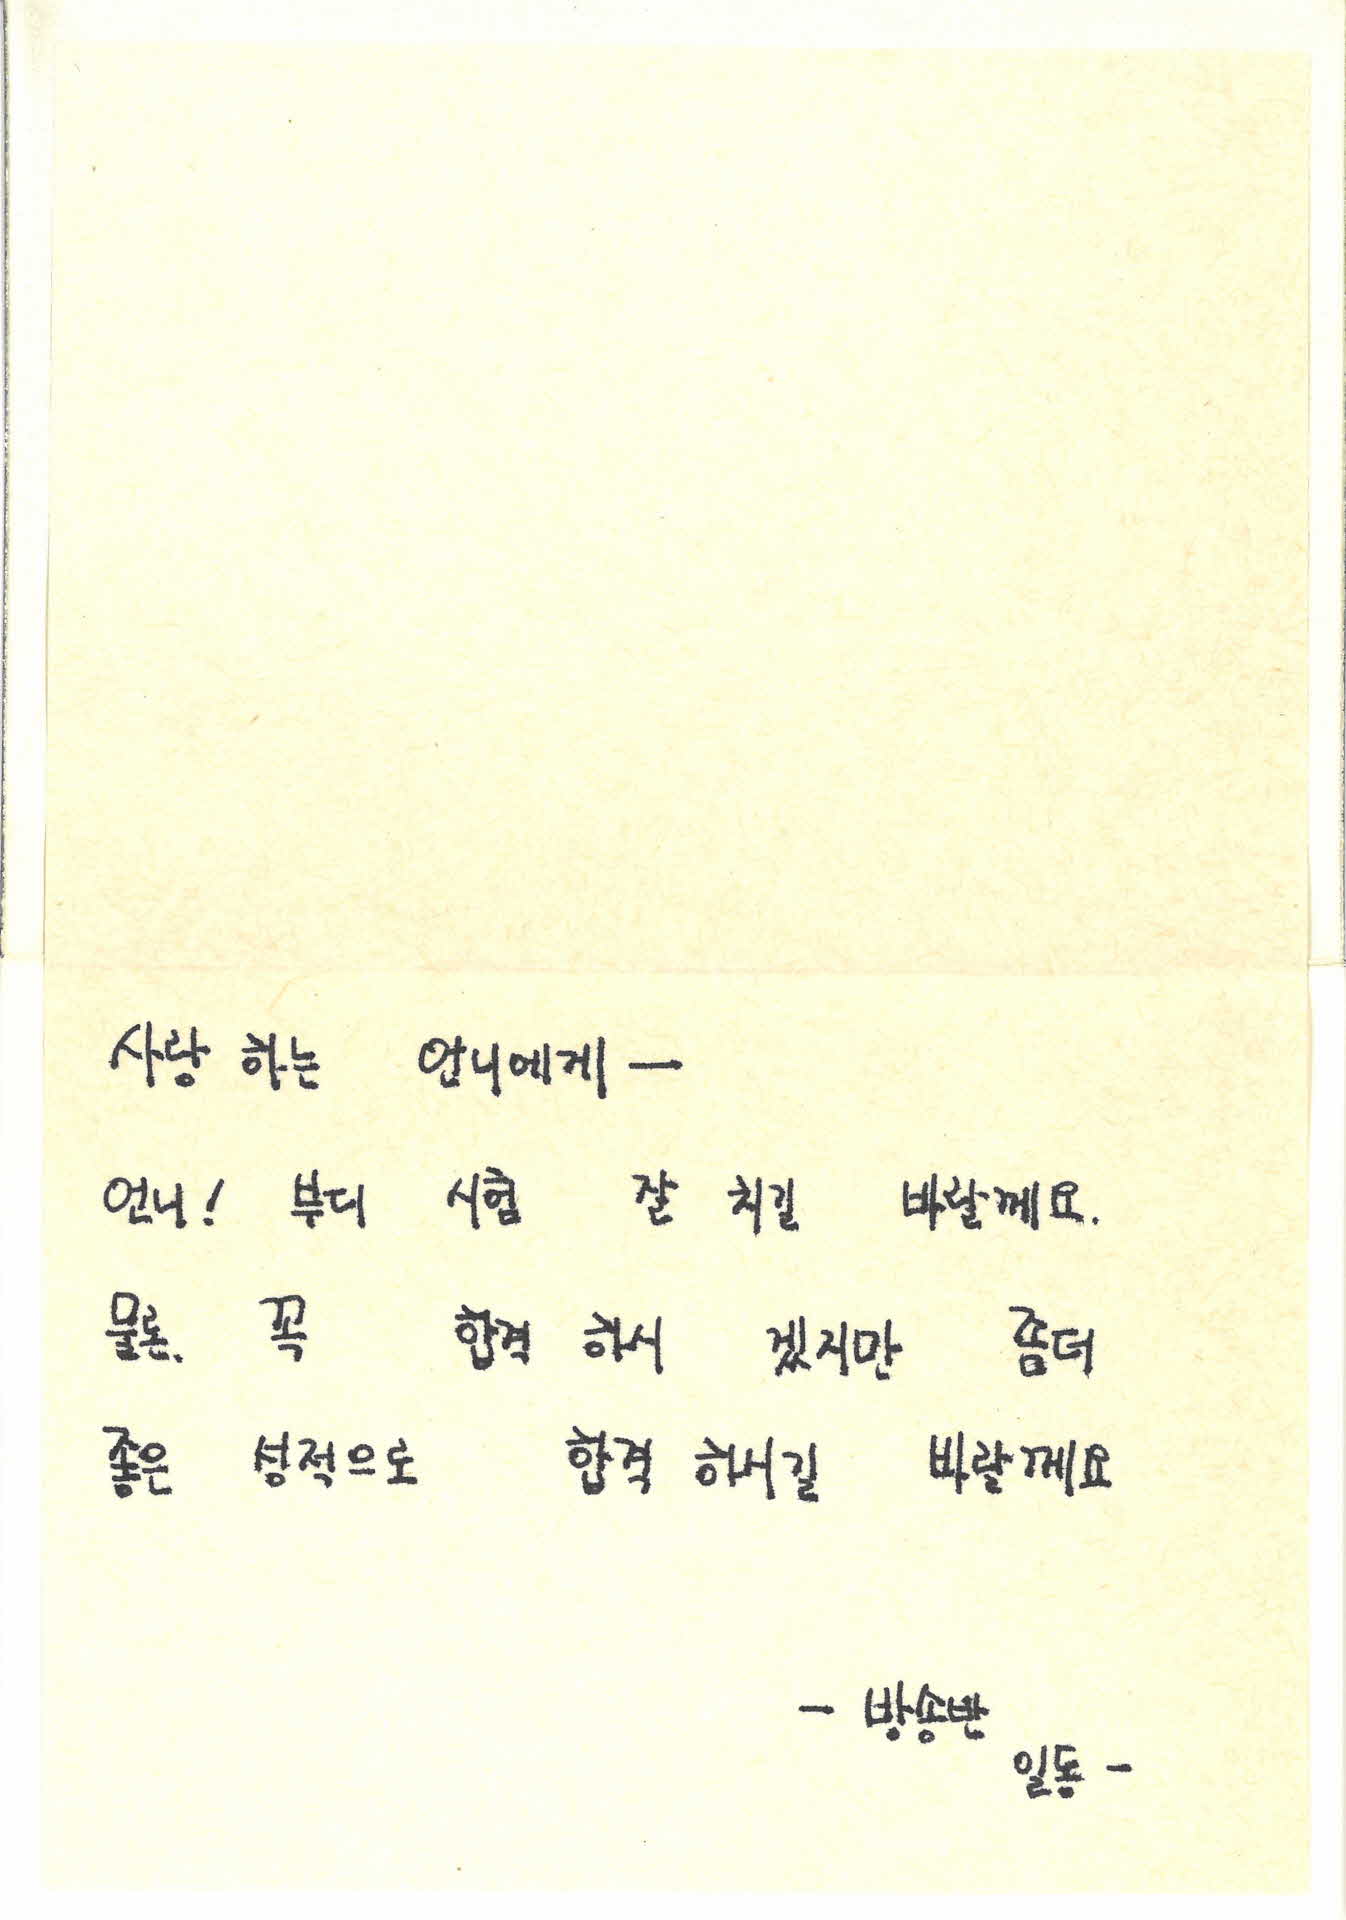 사랑 하는 언니에게 —
언니! 부디 시험 잘 치길 바랄께요.
물론. 꼭 합격 하시 겠지만 좀더
좋은 성적으로 합격 하시길 바랄께요
- 방송반
일동 -